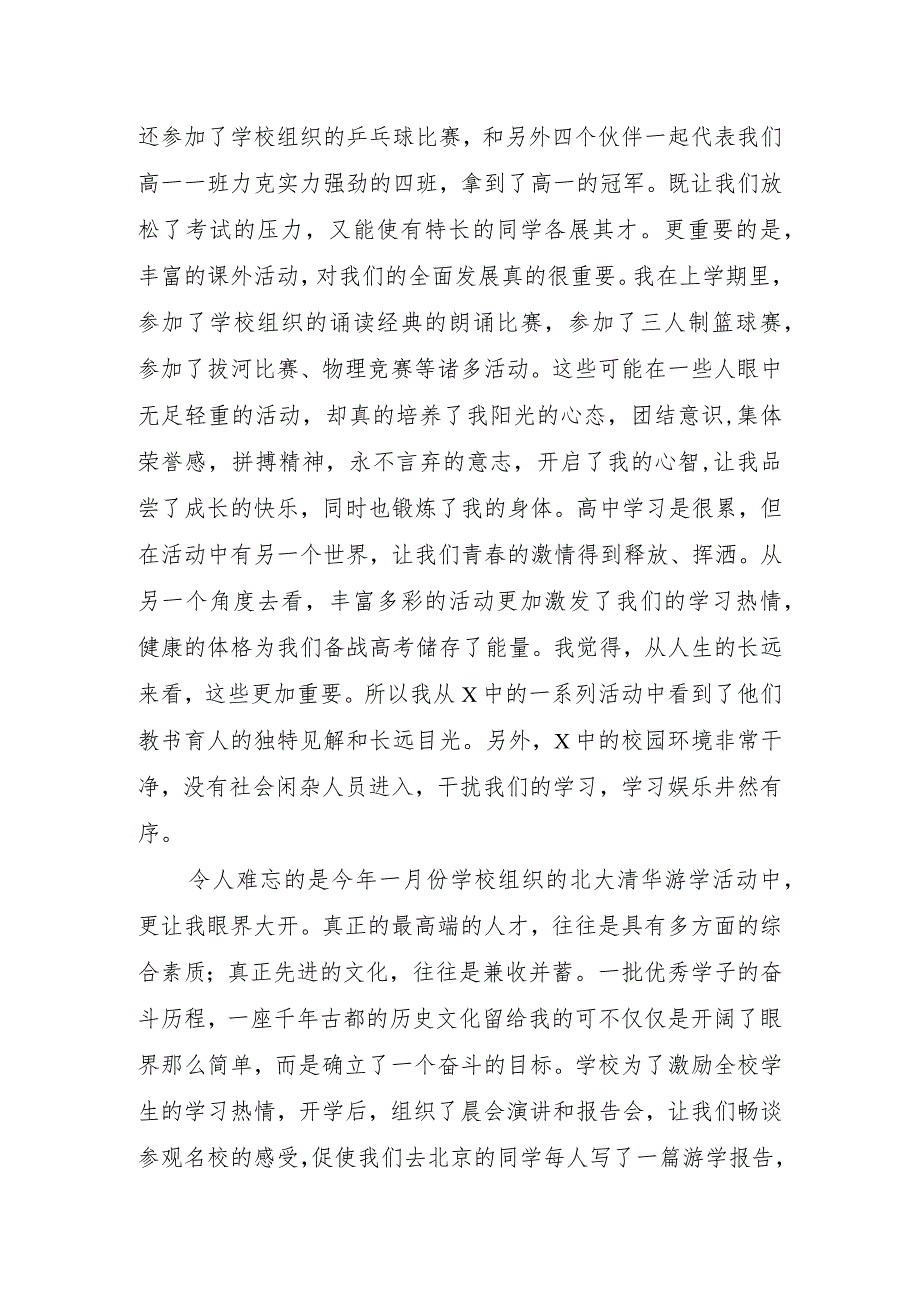 还参加了学校组织的乒乓球比赛，和另外四个伙伴一起代表我们
高一一班力克实力强劲的四班，拿到了高一的冠军。既让我们放
松了考试的压力，又能使有特长的同学各展其才。更重要的是，
丰富的课外活动，对我们的全面发展真的很重要。我在上学期里，
参加了学校组织的诵读经典的朗诵比赛，参加了三人制篮球赛，
参加了拔河比赛、物理竞赛等诸多活动。这些可能在一些人眼中
无足轻重的活动，却真的培养了我阳光的心态，团结意识,集体
荣誉感，拼搏精神，永不言弃的意志，开启了我的心智,让我品
尝了成长的快乐，同时也锻炼了我的身体。高中学习是很累，但
在活动中有另一个世界，让我们青春的激情得到释放、挥洒。从
另一个角度去看，丰富多彩的活动更加激发了我们的学习热情，
健康的体格为我们备战高考储存了能量。我觉得，从人生的长远
来看，这些更加重要。所以我从X中的一系列活动中看到了他们
教书育人的独特见解和长远目光。另外，X中的校园环境非常干
净，没有社会闲杂人员进入，干扰我们的学习，学习娱乐井然有
序。
令人难忘的是今年一月份学校组织的北大清华游学活动中，
更让我眼界大开。真正的最高端的人才，往往是具有多方面的综
合素质；真正先进的文化，往往是兼收并蓄。一批优秀学子的奋
斗历程，一座千年古都的历史文化留给我的可不仅仅是开阔了眼
界那么简单，而是确立了一个奋斗的目标。学校为了激励全校学
生的学习热情，开学后，组织了晨会演讲和报告会，让我们畅谈
参观名校的感受,促使我们去北京的同学每人写了一篇游学报告，